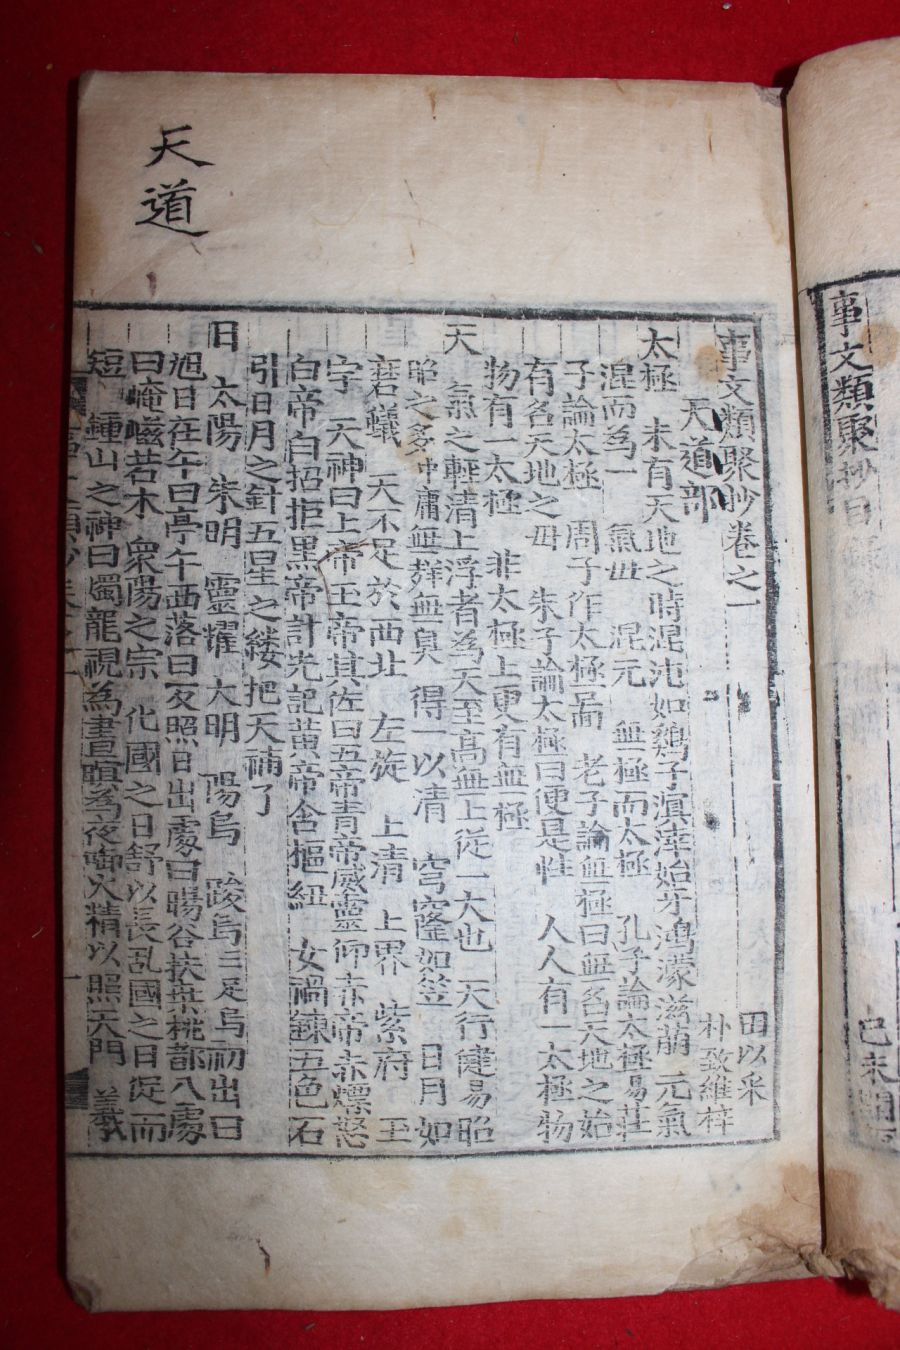 事文類聚抄目
己未開
天道
事文類聚抄卷之一
田以采
天道部
朴致維梓
太極 未有天地之時混沌如鷄子溟涬始牙鴻濛滋萠 元氣
混而爲一 氣毋 混元 無極而太極 孔子論太極易莊
子論太極 周子作太極圖 老子論無極曰無名天地之始
有名天地之毋 朱子論太極曰便是性 人人有一太極物
物有一太極 非太極上更有無極
天 氣之輕清上浮者為天至高無上從一大也 天行健易昭
昭之多中庸無聲無臭 得一以清 穹窿如笠 日月如
磨蟻 天不足於西北 左旋 上清 上界 紫府 至
字 天神曰上帝玉帝其佐曰五帝青帝威靈仰赤帝赤熛怒
白帝白招拒黑帝計光記黃帝含樞紐 女媧鍊五色石
引日月之針五星之縷把天補了
日 太陽 朱明 靈耀 大明 陽烏 踆烏三足烏初出曰
旭日在午曰亭午西落曰反照日出處曰暘谷扶桒桃都入處
曰崦嵫若木 衆陽之宗 化國之日舒以長乱國之日促而
短 鍾山之神曰燭龍視為晝瞑為夜啣火精以照天門 羲